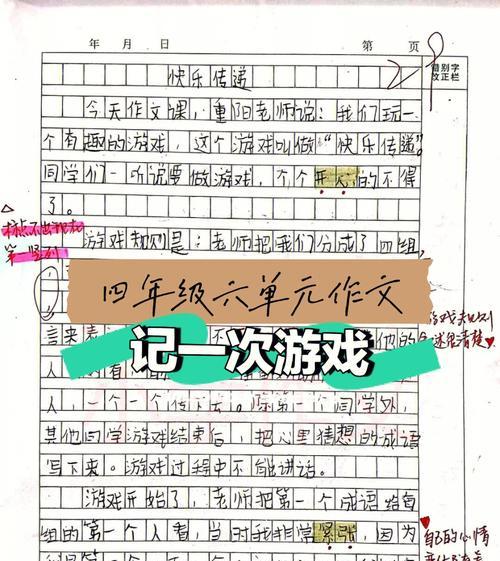 年 月 日 第 页
错别字
改正栏
29
快乐传递
今天作文课，重阳老师说：我们玩一
个有趣的游戏，这个游戏叫做“快乐传递”。
同学们一听说要做游戏，个个开心的不得
了。
标点不出现在
第一竖列
游戏规则是：老师把我们分成了四组，
四年级六单元作文
记一次游戏
游戏规则
述很清楚
言来表
他的
人
人一个一个传下去。除第一个同学外，
其他同学游戏结束后，把心里猜想的成语
写下来。游戏过程中不能讲话。
游戏开始了，老师把第一个成语给每
组的第一个人看，当时我非常紧张，因为
自己的心情